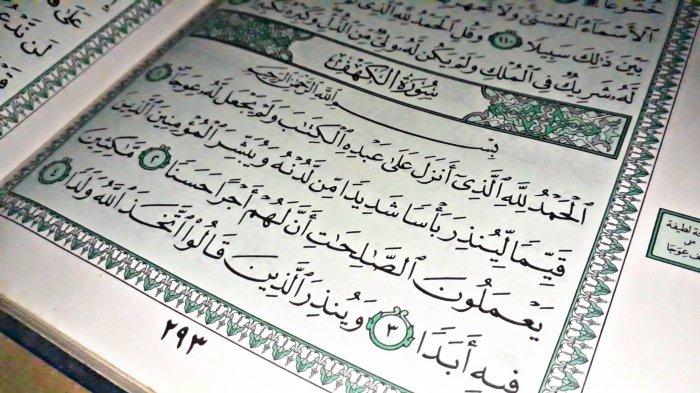 عَلَىٰ
لَن نَّدْعُ
ٱلْأَسْمَآءُ ٱلْحُسْنَىٰ وَلَا تَجْهَرْ
بَيْنَ ذَٰلِكَ سَبِيلًا ١١٠ وَقُلِ ٱلْحَمْدُ لِلَّهِ ٱلَّذِى
لَّهُۥ شَرِيكٌ فِى ٱلْمُلْكِ وَلَمْ يَكُن لَّهُۥ وَلِىٌّ مِّنَ ٱلذُّلِّ وَكَبِّرْهُ تَكْبِيرًا
سُورَةُ الكَهْفِ
بِسْمِ ٱللَّهِ ٱلرَّحْمَٰنِ ٱلرَّحِيمِ
ٱلْحَمْدُ لِلَّهِ ٱلَّذِىٓ أَنزَلَ عَلَىٰ عَبْدِهِ ٱلْكِتَٰبَ وَلَمْ يَجْعَل لَّهُۥ عِوَجَا ١
قَيِّمًا لِّيُنذِرَ بَأْسًا شَدِيدًا مِّن لَّدُنْهُ وَيُبَشِّرَ ٱلْمُؤْمِنِينَ ٱلَّذِينَ
يَعْمَلُونَ ٱلصَّٰلِحَٰتِ أَنَّ لَهُمْ أَجْرًا حَسَنًا ٢ مَّٰكِثِينَ
فِيهِ أَبَدًا ٣ وَيُنذِرَ ٱلَّذِينَ قَالُوا۟ ٱتَّخَذَ ٱللَّهُ وَلَدًا ٤
٢٩٣
لطيفة
عوجا